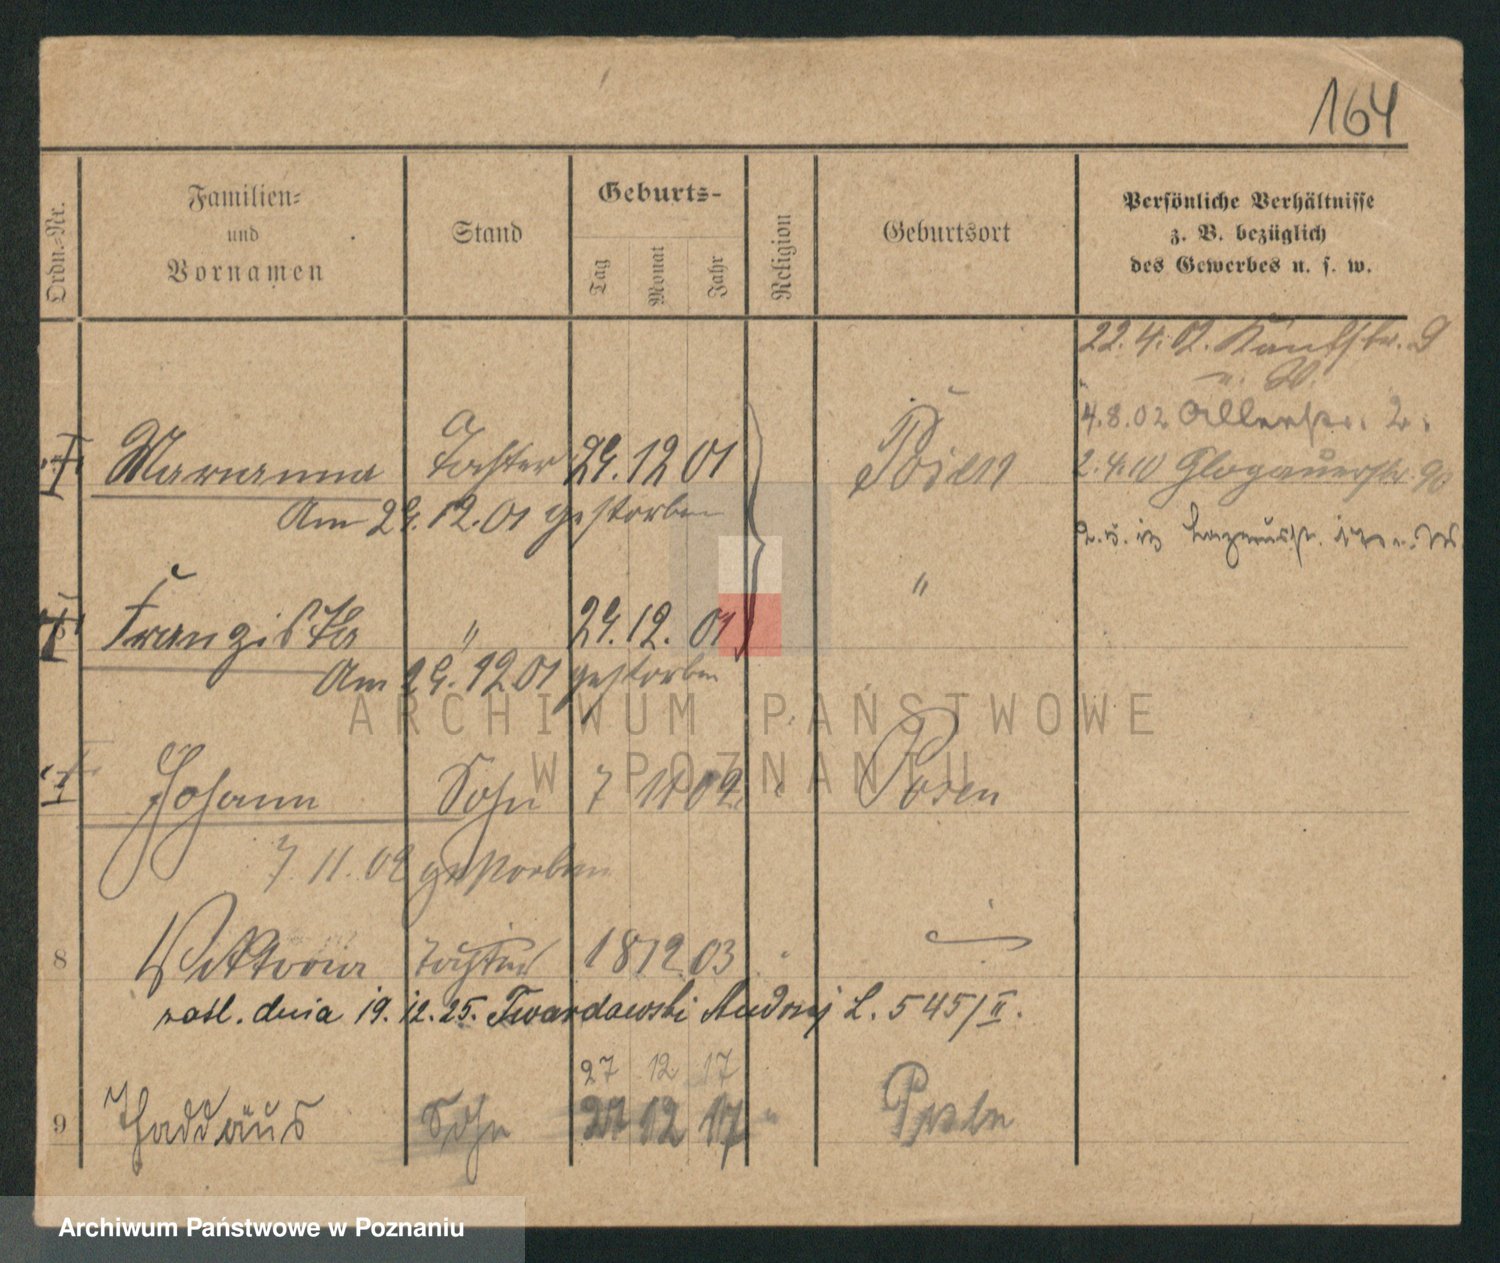 164
Ordn.-Nr.
Familien-
und
Vornamen
Stand
Geburts-
Tag
Monat
Jahr
Religion
Geburtsort
Persönliche Verhältnisse
z. B. bezüglich
des Gewerbes u. s. w.
22. 4. 02.
4. 8. 02 Allerstr. 2.
Glogauerstr. 90
Marianna Tochter 24. 12 01 Posen
Am 24. 12. 01 gestorben
Franziska " 24. 12. 01 "
Am 24. 12 01 gestorben
Johann Sohn 7 11 02. " Posen
7. 11. 02 gestorben
8 Viktoria Tochter 18 12 03 "
zaśl. dnia 19. 12. 25. Twardowski Andrzej L. 545/II.
27 12 17
9 Thaddäus Sohn 27 12 17 " Posen
ARCHIWUM PAŃSTWOWE
W POZNANIU
Archiwum Państwowe w Poznaniu